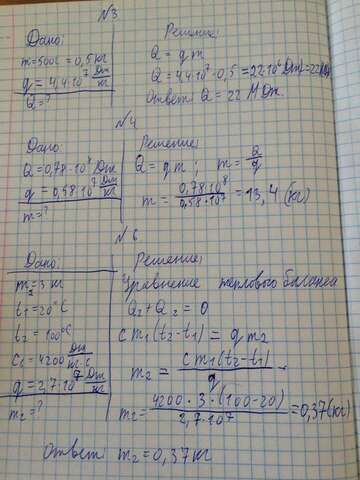 №3
Дано:
m=500г=0,5кг
q=4,4·10⁷ Дж/кг
Q=?
Решение:
Q=qm
Q=4,4·10⁷·0,5=22·10⁶(Дж)=22МДж
Ответ: Q=22 МДж.
№4
Дано:
Q=0,78·10⁸ Дж
q=0,58·10⁷ Дж/кг
m=?
Решение:
Q=qm; m=Q/q
m=0,78·10⁸/0,58·10⁷=13,4(кг)
№6
Дано:
m₂=3 кг
t₁=20°C
t₂=100°C
c₁=4200 Дж/кг·C
q=2,7·10⁷ Дж/кг
m₂=?
Решение:
Уравнение теплового баланса
Q₁+Q₂=0
cm₁(t₂-t₁)=qm₂
m₂=cm₁(t₂-t₁)/q
m₂=4200·3·(100-20)/2,7·10⁷=0,37(кг)
Ответ: m₂=0,37кг